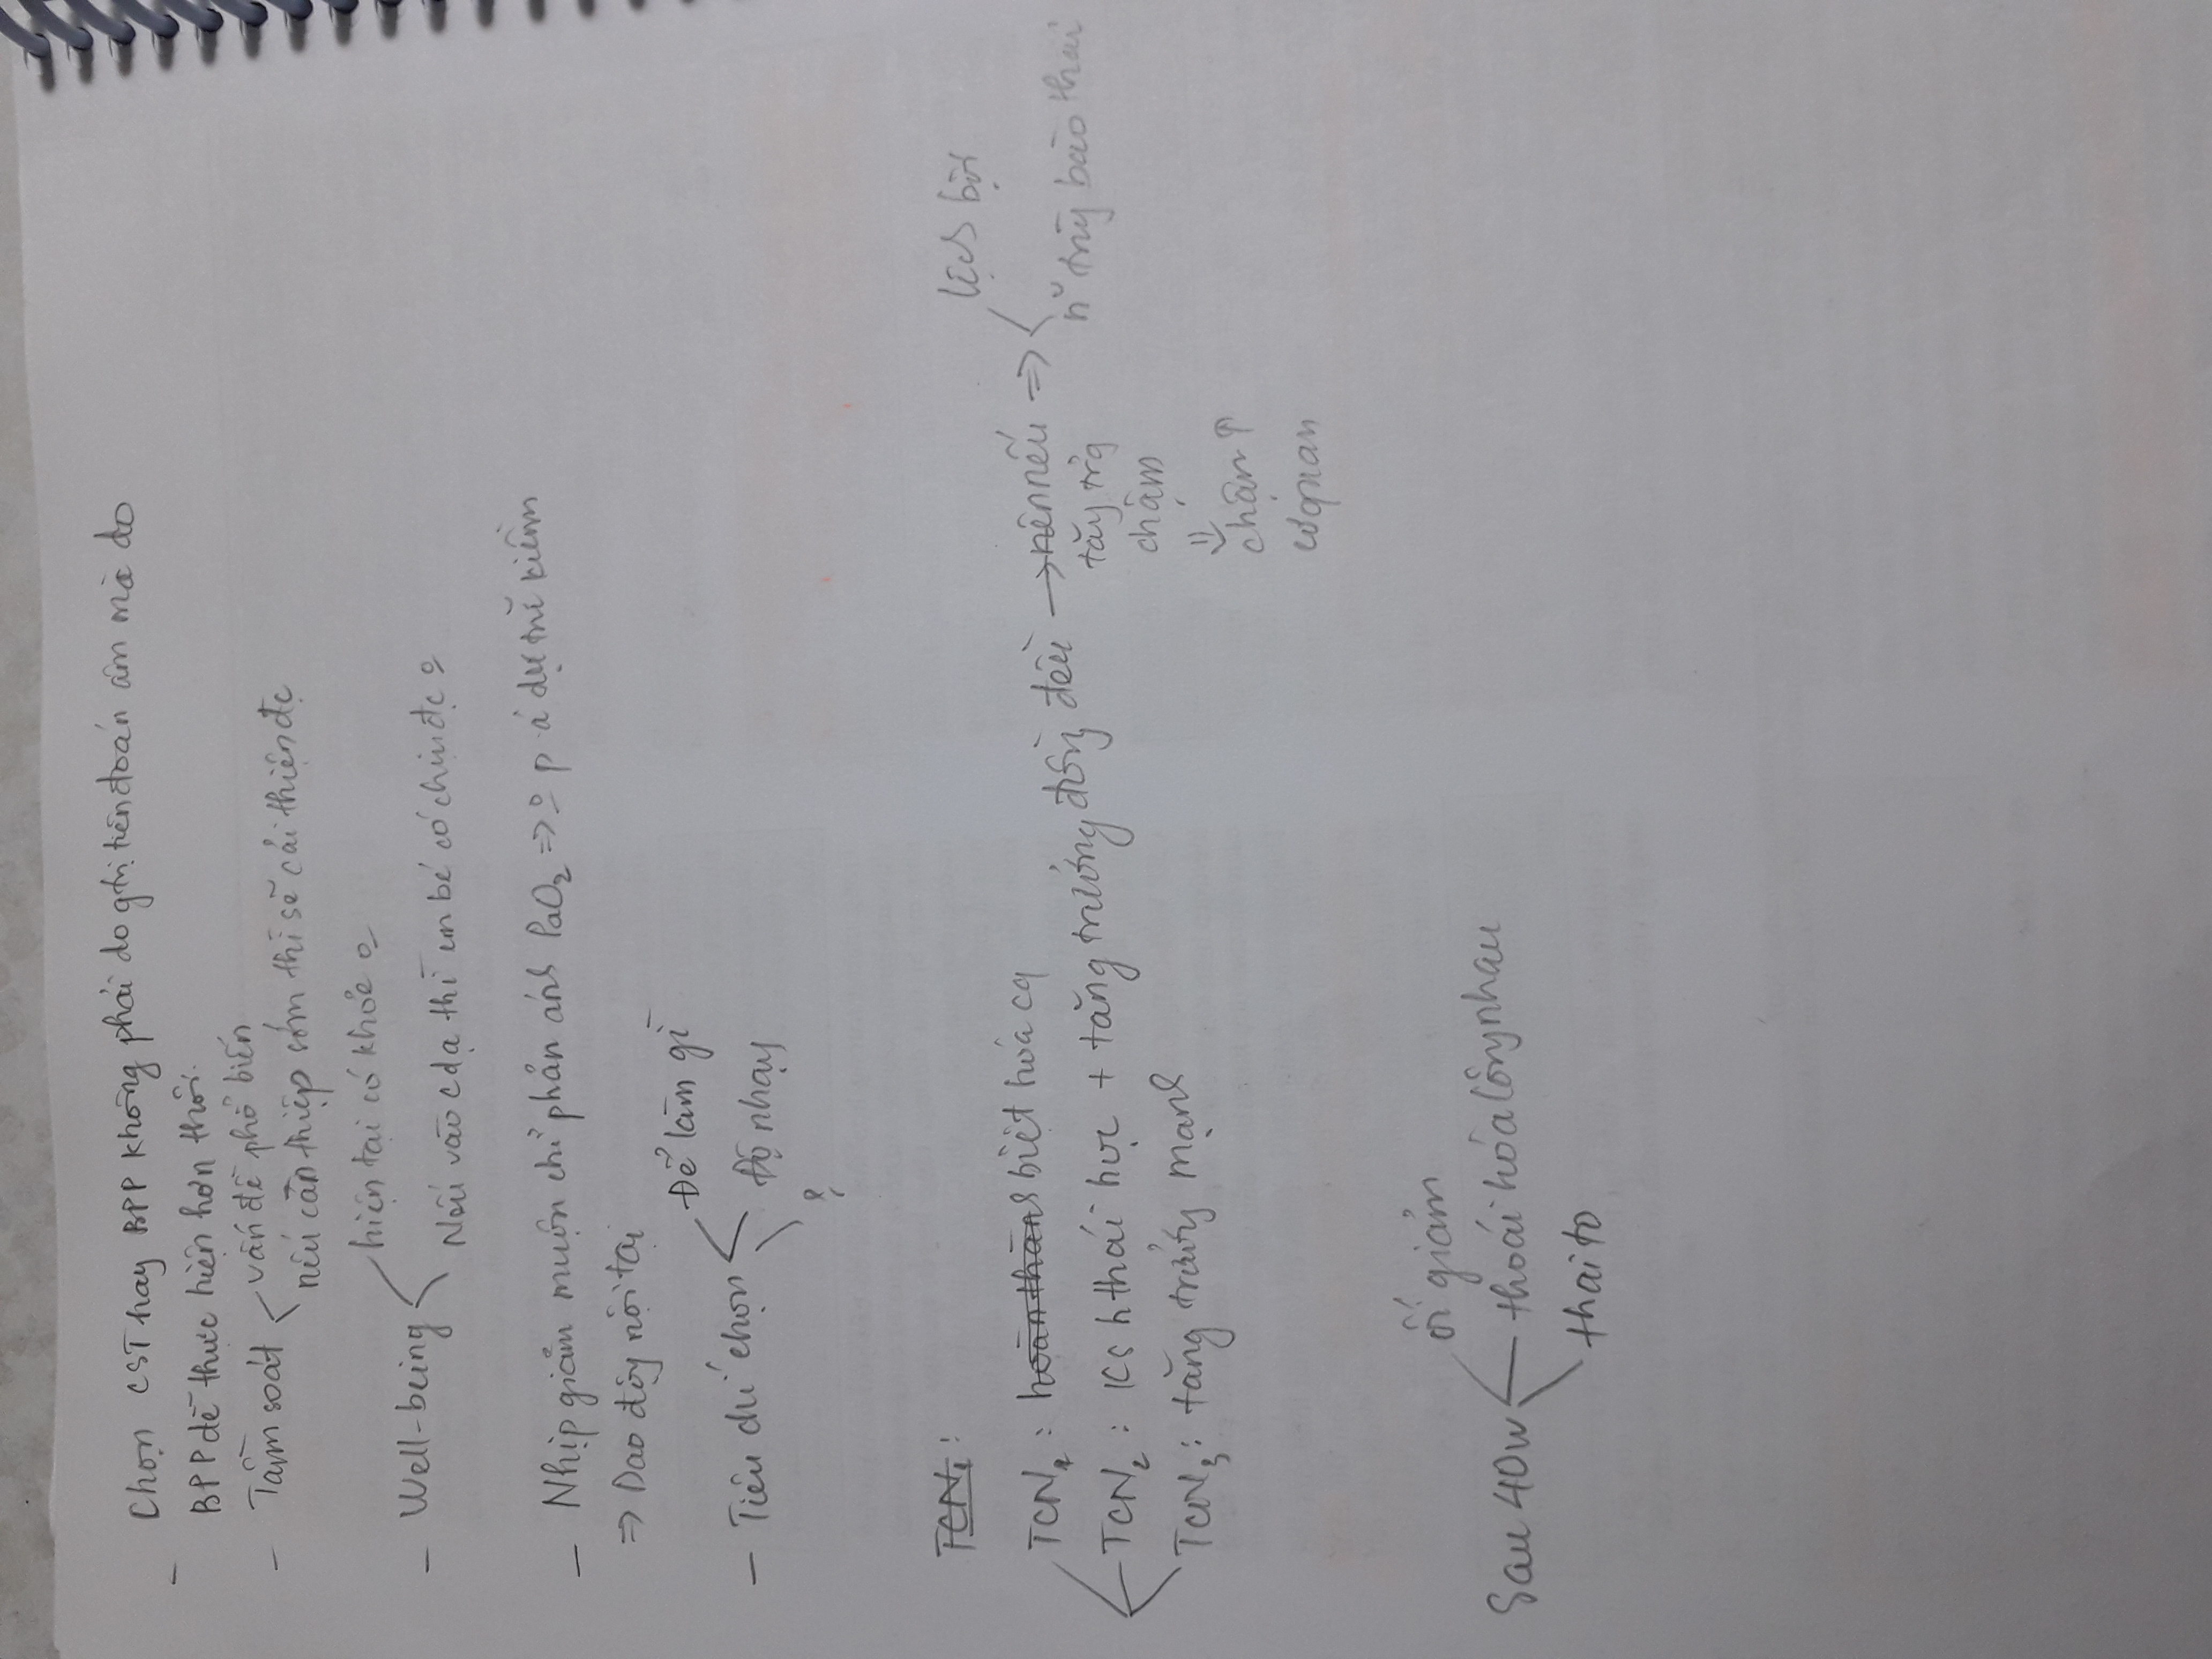 - Chọn CST hay BPP không phải do gtrị tiên đoán âm mà do
BPP dễ thực hiện hơn thôi.
- Tầm soát < vấn đề phổ biến
nếu can thiệp sớm thì sẽ cải thiện đc
- Well-being < hiện tại có khỏe o
Nếu vào cdạ thì em bé có chịu đc o
- Nhịp giảm muộn chỉ phản ánh PaO2 => o p.á dự trữ kiềm
=> Dao động nội tại
- Tiêu chí chọn < Để làm gì
Độ nhạy
?
TCN1:
TCN1: hoàn thành biệt hóa cq
TCN2: KS hthái học + tăng trưởng đồng đều → nên nếu => < lệch bội
tăg trg
chậm
=>
chậm ↑
cơ quan
n~ trùg bào thai
TCN3: tăng trưởng mạnh
Sau 40w < ối giảm
thoái hóa lông nhau
thai to